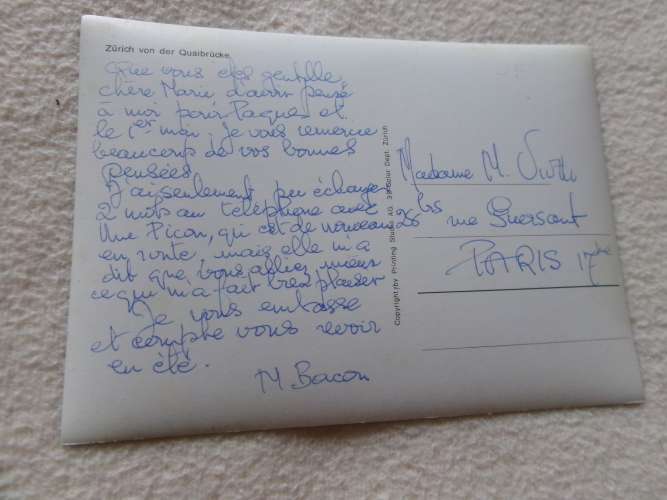 Zürich von der Quaibrücke
Que vous êtes gentille,
chère Marie d'avoir pensé
à moi pour Paques et
le 1er mai, je vous remercie
beaucoup de vos bonnes
pensées.
J'ai seulement pu échanger
2 mots au téléphone avec
Mme Picon, qui est de nouveau
en route, mais elle m'a
dit que vous alliez mieux
ce qui m'a fait très plaisir
Je vous embrasse
et compte vous revoir
en été.
M Bacon
Copyright by Printing Studio AG. Color Dept. Zürich
Madame M.
26 bis rue Guersant
PARIS 17